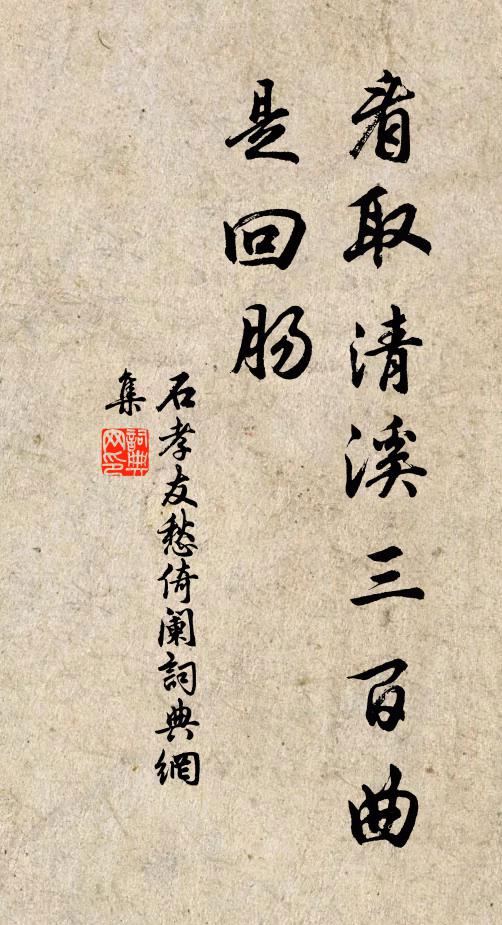 看取清溪三百曲
是回肠
石孝友愁倚阑詞典網
集
詞典网印